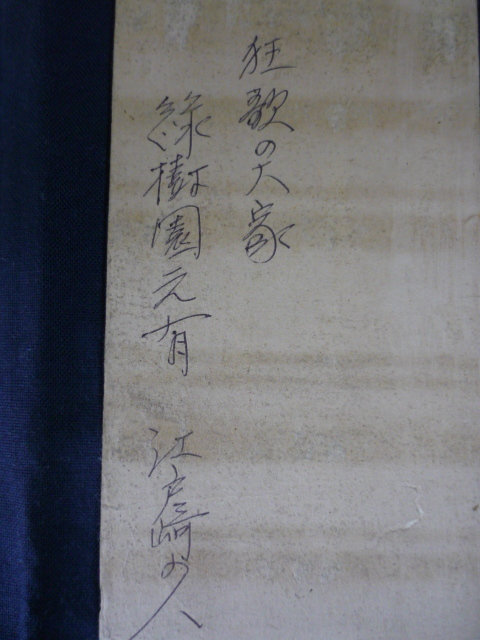 狂歌の大家
緑樹園元有 江戸崎の人